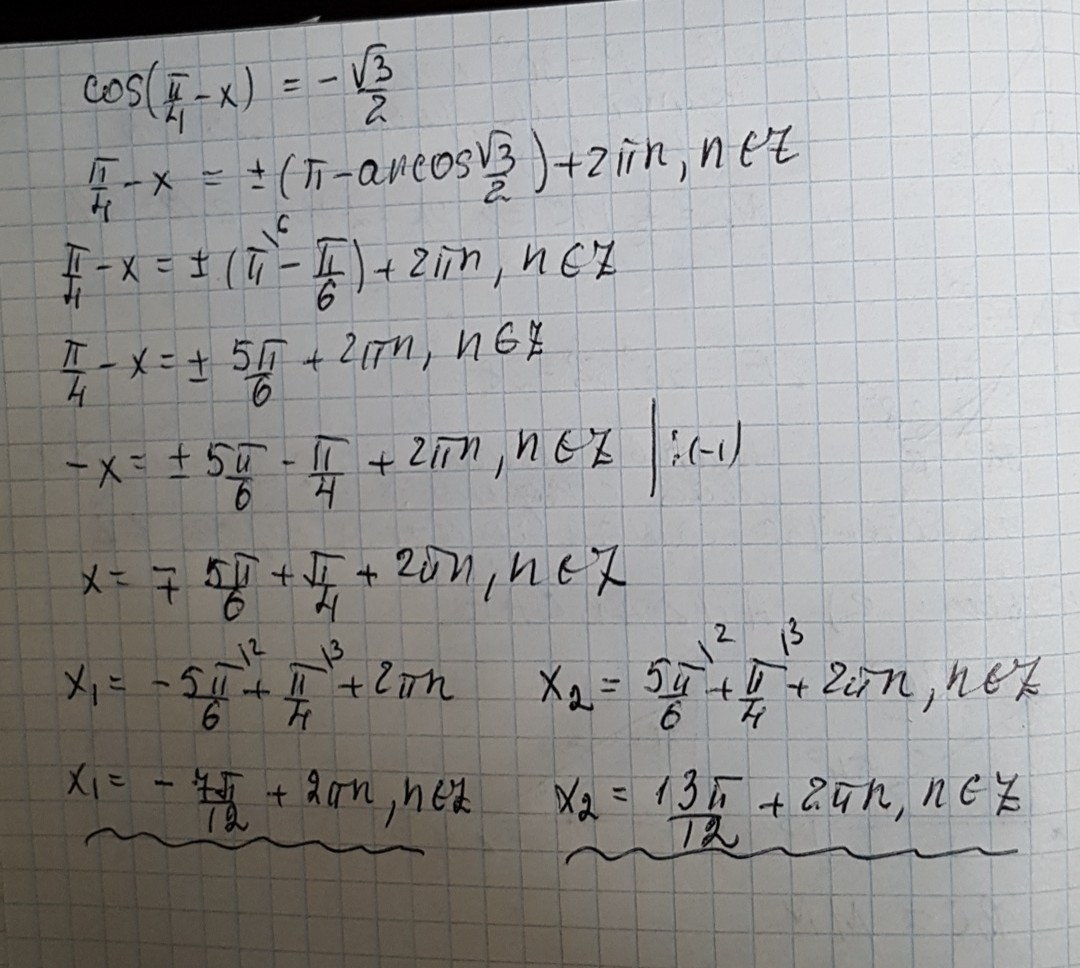 cos(π/4 - x) = -√3/2
π/4 - x = ±(π - arccos √3/2) + 2πn, n∈Z
π/4 - x = ± (π\6 - π/6) + 2πn, n∈Z
π/4 - x = ± 5π/6 + 2πn, n∈Z
-x = ± 5π/6 - π/4 + 2πn, n∈Z | :(-1)
x = ∓ 5π/6 + π/4 + 2πn, n∈Z
x₁ = - 5π/6\2 + π/4\3 + 2πn x₂ = 5π/6\2 + π/4\3 + 2πn, n∈Z
x₁ = - 7π/12 + 2πn, n∈Z x₂ = 13π/12 + 2πn, n∈Z